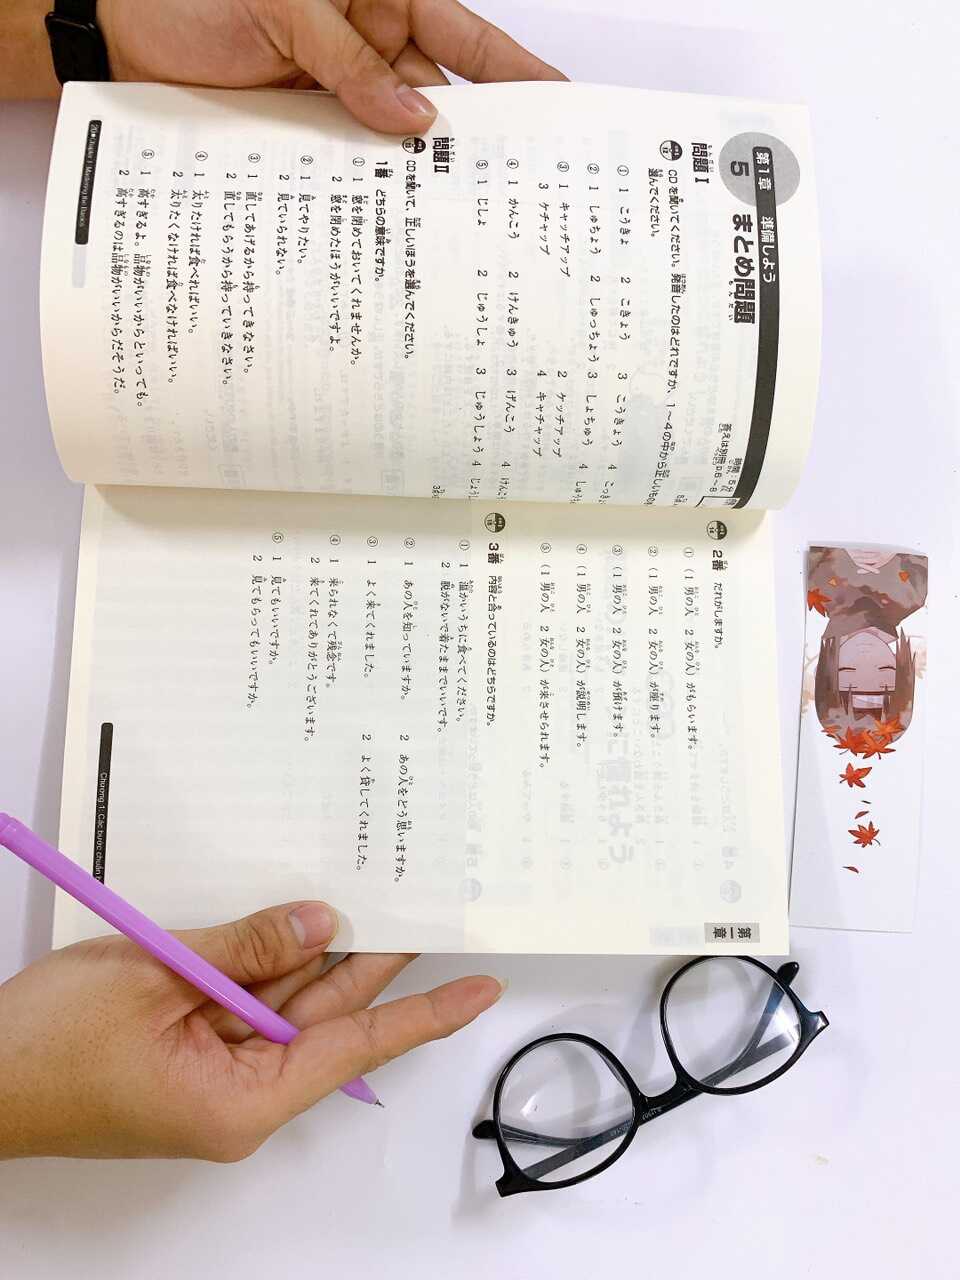 第1章 準備しよう
5 まとめ問題
時間：5分
答えは別冊p.6~8
問題Ⅰ
CDを聞いてください。発音したのはどれですか、1～4の中から正しいものを
選んでください。
① 1 こうきょ 2 こきょう 3 こうきょう 4
② 1 しゅちょう 2 しゅっちょう 3 しょちゅう 4
③ 1 キャッチアップ 2 ケッチアップ
3 ケチャップ 4 キャチャップ
④ 1 かんこう 2 けんきゅう 3 げんこう 4 けんこう
⑤ 1 じしょ 2 じゅうしょ 3 じゅうしょう 4
問題Ⅱ
CDを聞いて、正しいほうを選んでください。
1番 どちらの意味ですか。
① 1 窓を閉めておいてくれませんか。
2 窓を閉めたほうがいいですよ。
② 1 見てやりたい。
2 見ていられない。
③ 1 直してあげるから持ってきなさい。
2 直してもらうから持っていきなさい。
④ 1 太りたければ食べればいい。
2 太りたくなければ食べなければいい。
⑤ 1 高すぎるよ。品物がいいからといっても。
2 高すぎるのは品物がいいからだそうだ。
20 Chapter 1 Mastering the Basics
2番 だれがしますか。
① (1 男の人 2 女の人) がもらいます。
② (1 男の人 2 女の人) が座ります。
③ (1 男の人 2 女の人) が預けます。
④ (1 男の人 2 女の人) が説明します。
⑤ (1 男の人 2 女の人) が来させられます。
3番 内容と合っているのはどちらですか。
① 1 温かいうちに食べてください。
2 脱がないで着たままでいいです。
② 1 あの人を知っていますか。 2 あの人をどう思いますか。
③ 1 よく来てくれました。 2 よく貸してくれました。
④ 1 来られなくて残念です。
2 来てくれてありがとうございます。
⑤ 1 見てもいいですか。
2 見てもらってもいいですか。
Chương 1: Các bước chuẩn
第一章